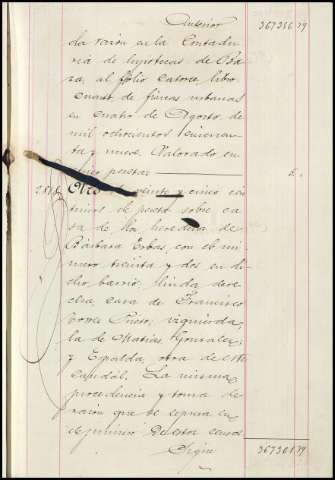 Anterior 367356 79
da razón en la Contadu
ría de hipotecas de Ba
za, al folio catorce libro
cuarto de fincas urbanas
en cuatro de Agosto de
mil ochocientos cincuen
ta y nueve. Valorado en
cinco pesetas 5 "
Otro de veinte y cinco cén
timos de peseta sobre ca
sa de los herederos de
Bárbara Erbas, con el nú
mero treinta y dos en di
cho barrio, linda dere
cha, casa de Francisco
Torres Cueso, izquierda,
la de Matías Gonzalez,
y Espalda, otra de
La misma
procedencia y toma de
razón que se espresa en
el primero de estos censos
Sigue 367361 79